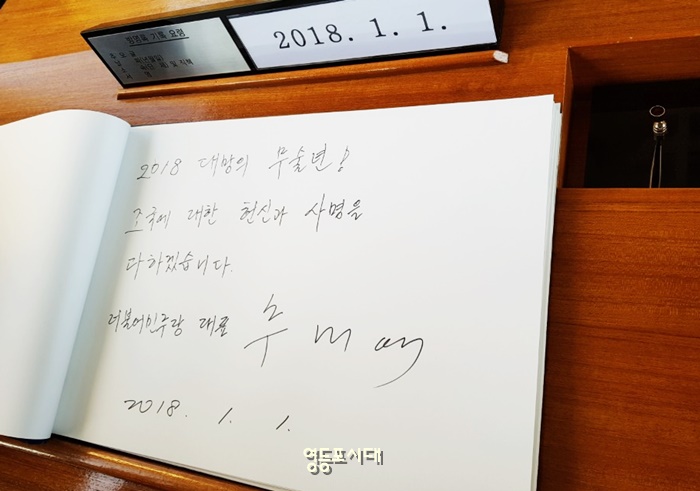 방명록 기록 요령
2018. 1. 1.
2018 대망의 무술년!
조국에 대한 헌신과 사명을
다하겠습니다.
더불어민주당 대표 추
2018. 1. 1.
영등포시대